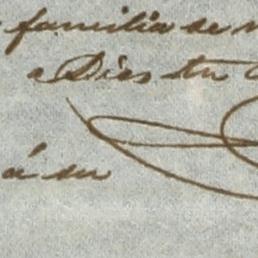 familia se
a Dios tu
á su